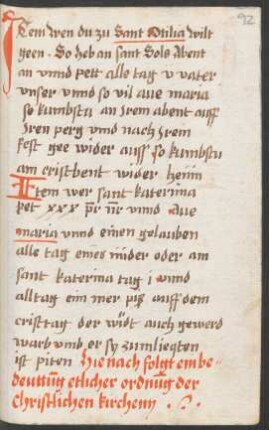 92
Item wen du zu Sant Otilia wilt
geen. So heb an sant Gols Abent
an vnnd pett alle tag v vater
vnser vnnd so vil aue maria
so kumbstu an jrem abent auff
jren perg vnnd nach jrem
fest gee wider auss so kumbstu
am cristbent wider heim
Item wer sant katerina
pet xxx pr nr vnnd Aue
maria vnnd einen gelauben
alle tag eines nider oder am
sant katerina tag j vnnd
alltag ein mer piss auff dem
cristtag der wirdt auch gewerd
warb vmb er sy zimliegsten
ist piten Hie nach folgt ein be-
deuttung etlicher ordnung der
christlichen kirchenn